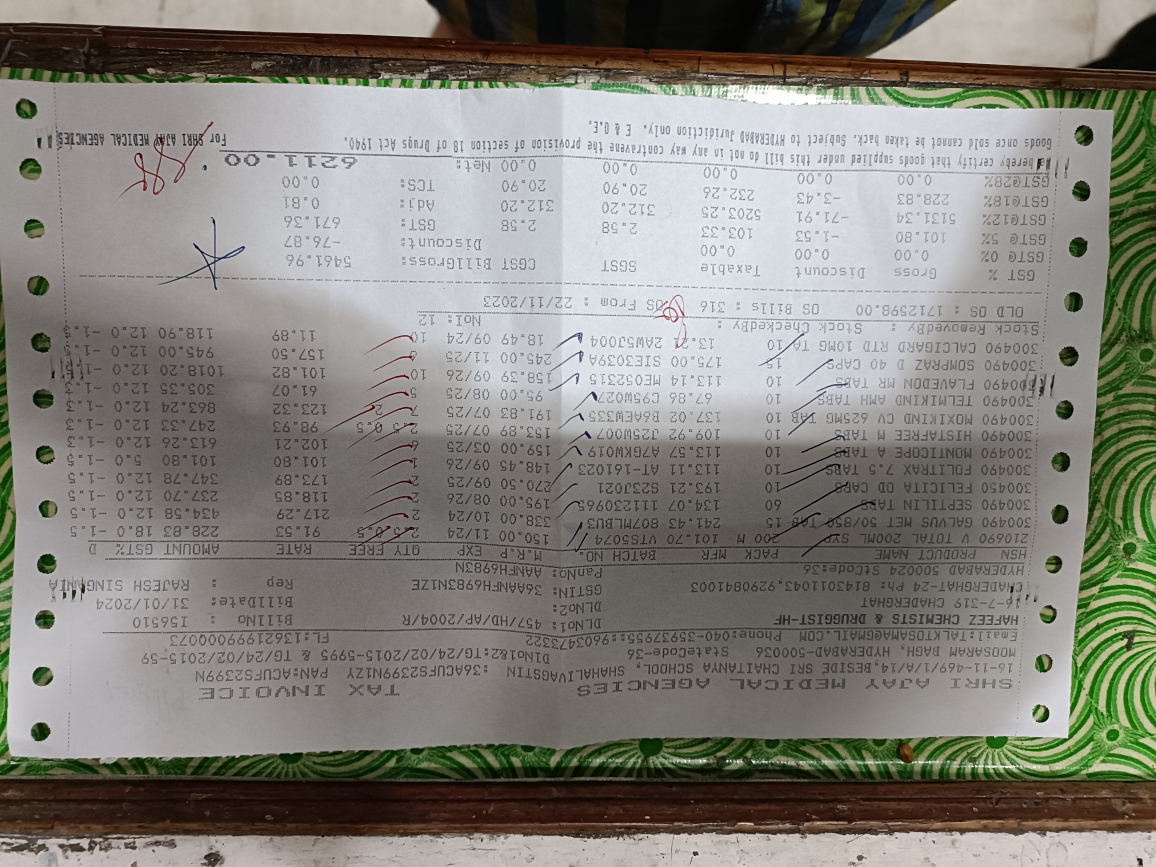 SHRI AJAY MEDICAL AGENCIES TAX INVOICE
16-11-469/1/A/14,BESIDE SRI CHAITANYA SCHOOL, SHAHALIVAGSTIN :36ACUFS2399N1ZY PAN:ACUFS2399N
MOOSARAM BAGH, HYDERABAD-500036 StateCode-36 DlNo1&2:TG/24/02/2015-5995 & TG/24/02/2015-59
Email:TALKTOSAMA@GMAIL.COM Phone:040-35937955::9603473322 FL:13621999000073
HAFEEZ CHEMISTS & DRUGGIST-HF DLNo1: 457/HD/AP/2004/R BillNo : I56510
16-7-319 CHADERGHAT DLNo2: BillDate: 31/01/2024
CHADERGHAT-24 Ph: 8143011043,9290841003 GSTIN: 36AANFH6983N1ZE Rep : RAJESH SINGANIA
HYDERABAD 500024 StCode:36 PanNo: AANFH6983N
HSN PRODUCT NAME PACK MFR BATCH NO. M.R.P EXP QTY FREE RATE AMOUNT GST% D
210690 V TOTAL 200ML SYP 200 M 101.70 VTS5074 150.00 11/24 2.5 0.5 91.53 228.83 18.0 -1.5
300490 GALVUS MET 50/850 TAB 15 241.43 807MLBU3 338.00 10/24 2 217.29 434.58 12.0 -1.5
300490 SEPTILIN TABS 60 134.07 111230965 195.00 08/26 2 118.85 237.70 12.0 -1.5
300450 FELICITA OD CAPS 10 193.21 S23J021 270.50 09/25 2 173.89 347.78 12.0 -1.5
300490 FOLITRAX 7.5 TABS 10 113.11 AT-161023 148.45 09/26 1 101.80 101.80 5.0 -1.5
300490 MONTICOPE A TABS 10 113.57 A7GKW019 159.00 03/25 6 102.21 613.26 12.0 -1.3
300490 HISTAFREE M TABS 10 109.92 J25W007 153.89 07/25 2.5 0.5 98.93 247.33 12.0 -1.3
300490 MOXIKIND CV 625MG TAB 10 137.02 B6AEW335 191.83 07/25 7 2 123.32 863.24 12.0 -1.3
300490 TELMIKIND AMH TABS 10 67.86 C95W027 95.00 08/25 5 61.07 305.35 12.0 -1.3
300490 FLAVEDON MR TABS 10 113.14 ME052315 158.39 09/26 10 101.82 1018.20 12.0 -1.5
300490 SOMPRAZ D 40 CAPS 15 175.00 SIE3039A 245.00 11/25 6 157.50 945.00 12.0 -1.5
300490 CALCIGARD RTD 10MG TA 10 13.21 2AWSJ004 18.49 09/24 10 11.89 118.90 12.0 -1.5
Stock RemovedBy : Stock CheckedBy : NoI: 12
OLD OS : 1712598.00 OS Bills : 316 OS From : 22/11/2023
GST % Gross Discount Taxable SGST CGST BillGross: 5461.96
GST@ 0% 0.00 0.00 0.00 Discount: -76.87
GST@ 5% 101.80 -1.53 103.33 2.58 2.58 GST: 671.36
GST@12% 5131.34 -71.91 5203.25 312.20 312.20 Adj: 0.81
GST@18% 228.83 -3.43 232.26 20.90 20.90 TCS: 0.00
GST@28% 0.00 0.00 0.00 0.00 0.00 Net: 6211.00
hereby certify that goods supplied under this bill do not in any way contravene the provision of section 18 of Drugs Act 1940.
Goods once sold cannot be taken back. Subject to HYDERABAD Juridiction only. E & O.E. For SHRI AJAY MEDICAL AGENCIES